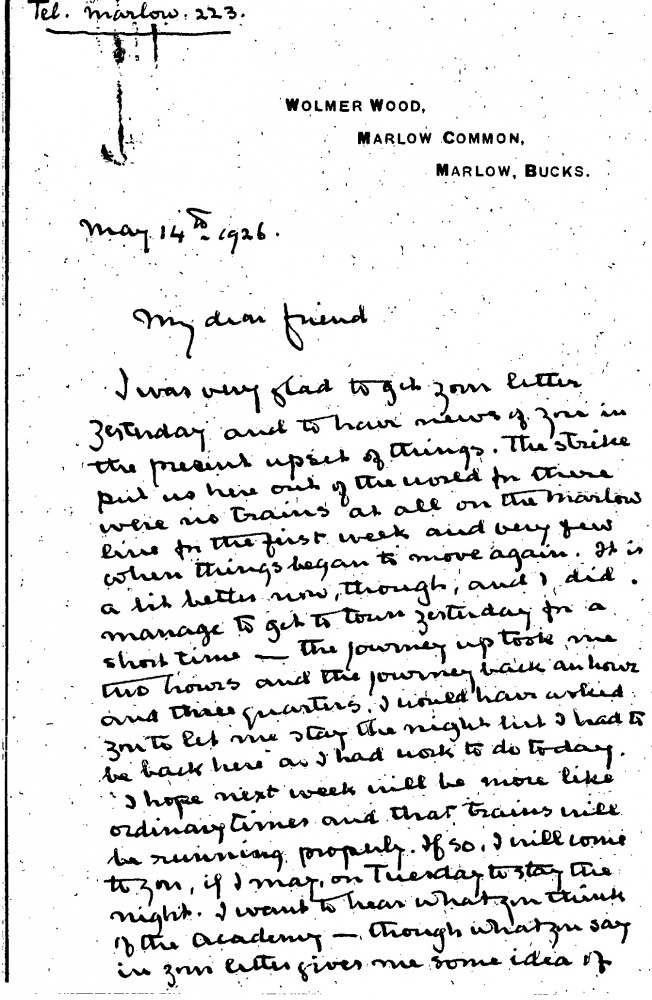 Tel. Marlow. 223.
WOLMER WOOD,
MARLOW COMMON,
MARLOW, BUCKS.
May 14th 1926.
My dear friend
I was very glad to get your letter
yesterday and to have news of you in
the present upset of things. The strike
put us here out of the world for there
were no trains at all on the Marlow
line for the first week and very few
when things began to move again. It is
a bit better now, though, and I did
manage to get to town yesterday for a
short time — the journey up took me
two hours and the journey back an hour
and three quarters. I would have asked
you to let me stay the night but I had to
be back here as I had work to do today.
I hope next week will be more like
ordinary times and that trains will
be running properly. If so, I will come
to you, if I may, on Tuesday to stay the
night. I want to hear what you think
of the Academy — though what you say
in your letter gives me some idea of